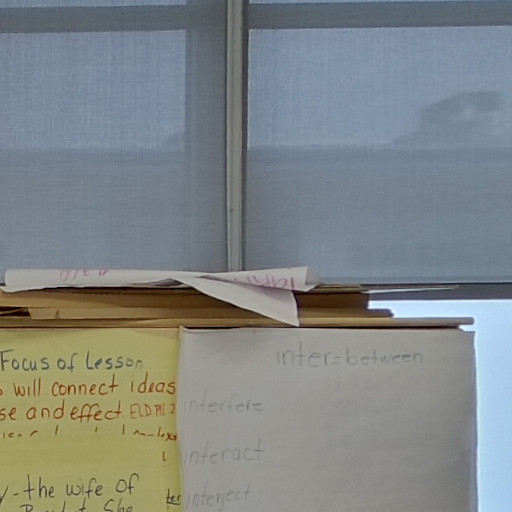 Focus of Lesson
will connect ideas
se and effect ELD PI.2
y - the wife of
She
inter=between
interfere
interact
interject